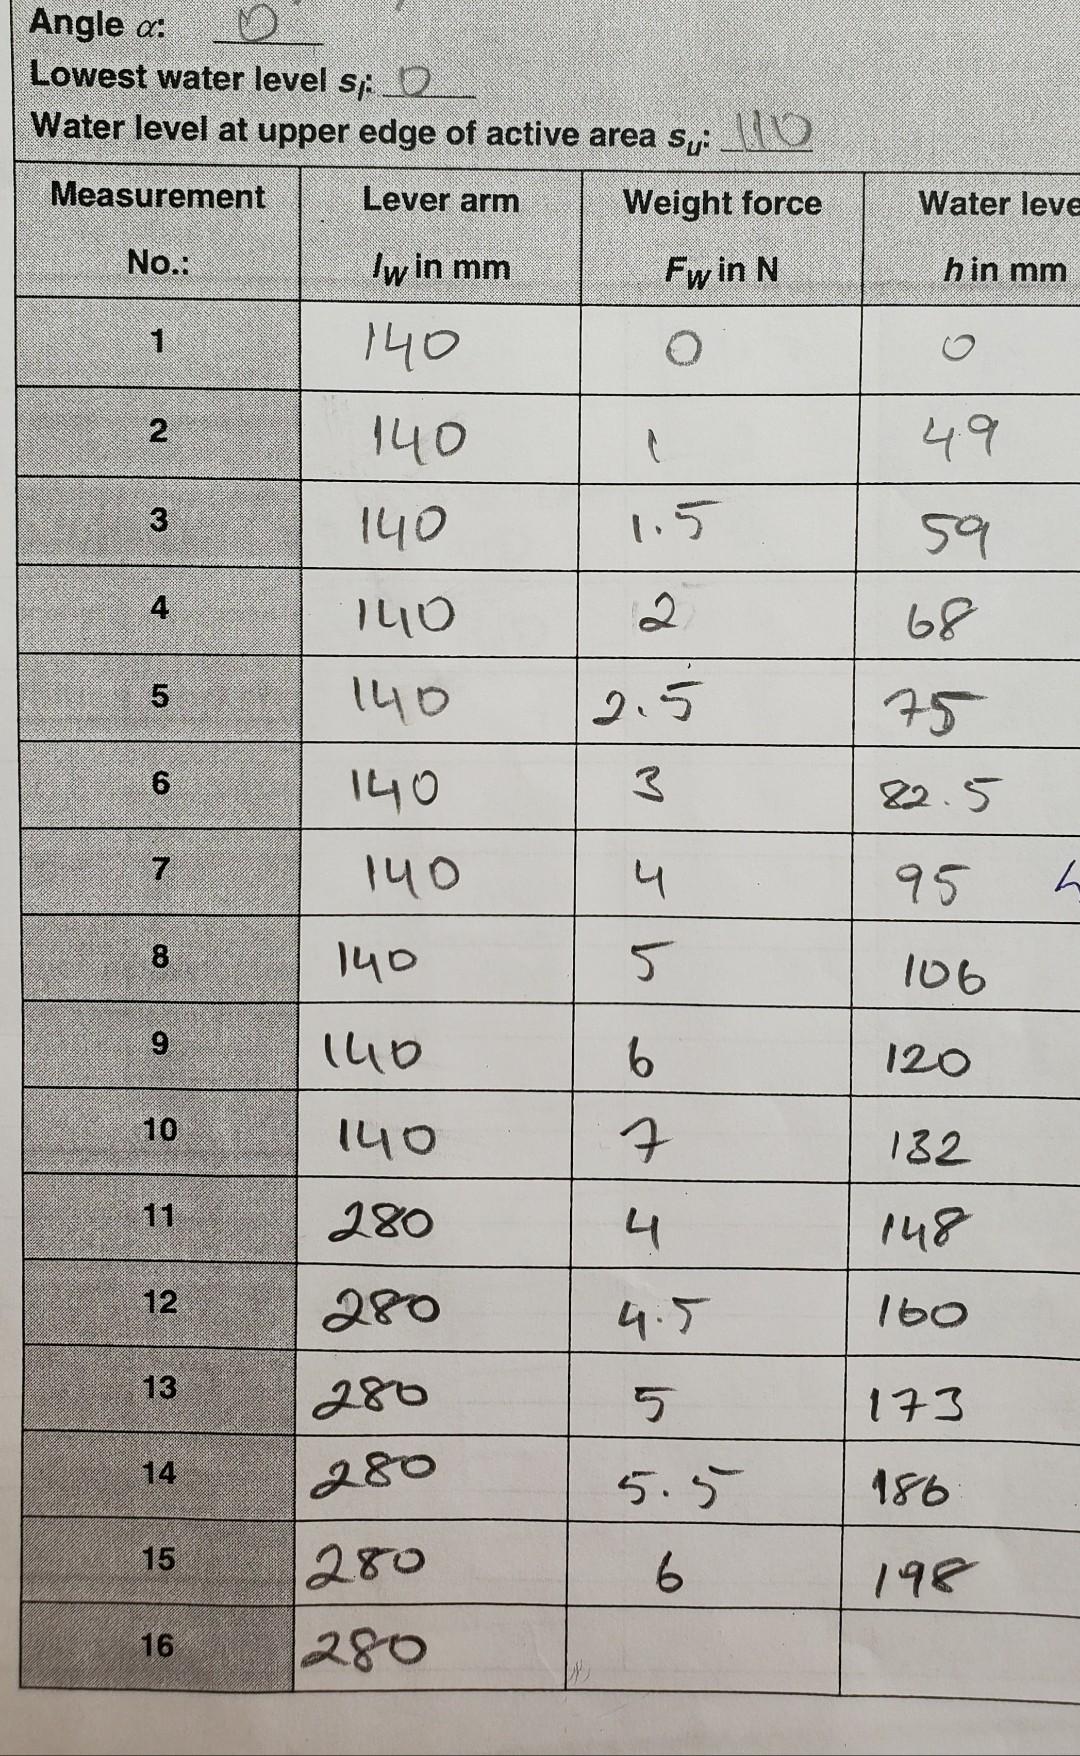 Angle α: 0
Lowest water level sl: 0
Water level at upper edge of active area su: 110
Measurement No.: Lever arm lW in mm Weight force FW in N Water leve h in mm
1 140 0 0
2 140 1 49
3 140 1.5 59
4 140 2 68
5 140 2.5 75
6 140 3 82.5
7 140 4 95
8 140 5 106
9 140 6 120
10 140 7 132
11 280 4 148
12 280 4.5 160
13 280 5 173
14 280 5.5 186
15 280 6 198
16 280